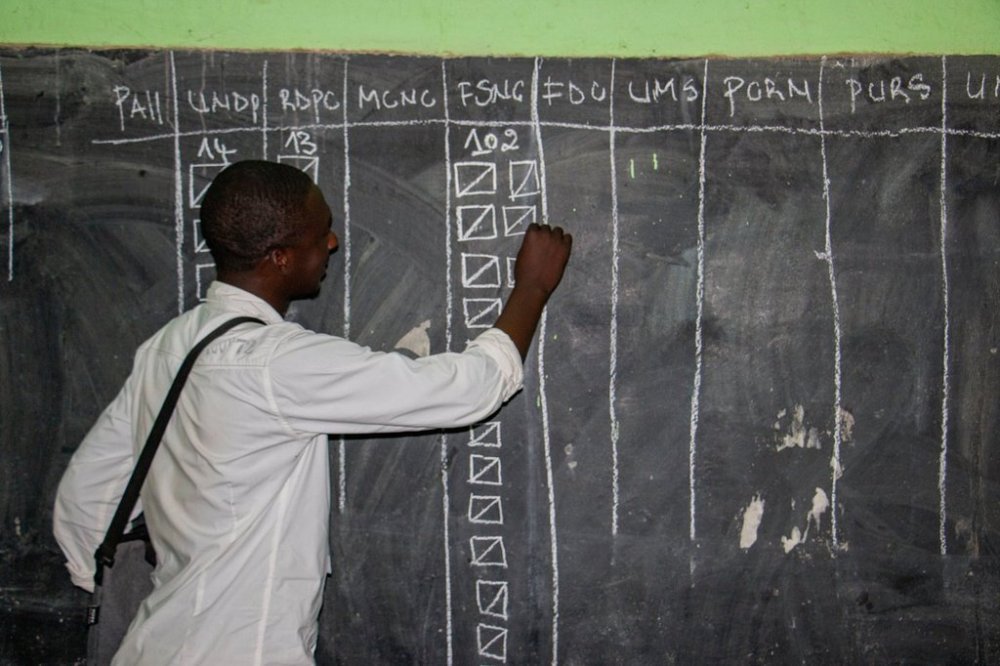 PAII UNDP RDPC MCNC FSNC FDC UMS PCRN PURS UN
14 13 102